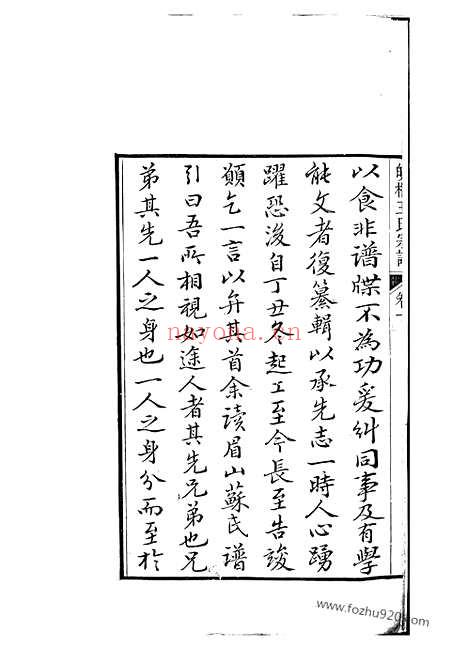 王氏宗譜 卷一
以食非谱牒不為功爰糾同事及有學
能文者復纂輯以承先志一時人心踴
躍恐後自丁丑冬起工至今長至告竣
願乞一言以弁其首余读眉山蘇氏谱
引曰吾所相視如途人者其先兄弟也兄
弟其先一人之身也一人之身分而至於
nayona.cn
www.fozhu920.com